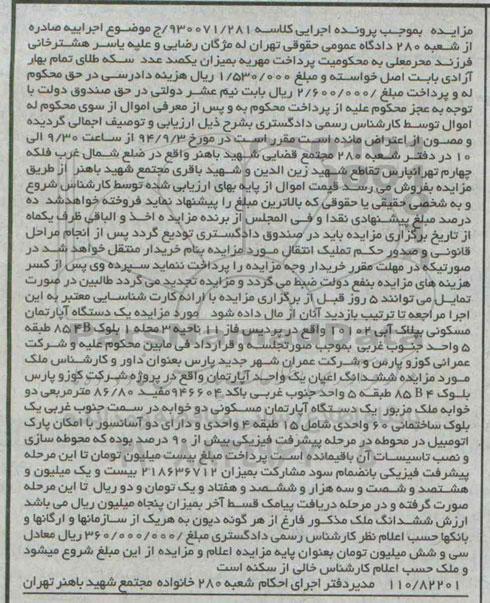 مزایده بموجب پرونده اجرایی کلاسه ۹۳۰۰۷۱/۲۸۱/ج موضوع اجراییه صادره
از شعبه ۲۸۰ دادگاه عمومی حقوقی تهران له مژگان رضایی و علیه یاسر هشترخانی
فرزند محرمعلی به محکومیت پرداخت مهریه بمیزان یکصد عدد سکه طلای تمام بهار
آزادی بابت اصل خواسته و مبلغ ۱/۵۳۰/۰۰۰ ریال هزینه دادرسی در حق محکوم
له و پرداخت مبلغ /۲/۶۰۰/۰۰۰ ریال بابت نیم عشر دولتی در حق صندوق دولت با
توجه به عجز محکوم علیه از پرداخت محکوم به و پس از معرفی اموال از سوی محکوم له
اموال توسط کارشناس رسمی دادگستری بشرح ذیل ارزیابی و توصیف اجمالی گردیده
و مصون از اعتراض مانده است مقرر است در مورخ ۹۴/۹/۳ از ساعت ۹/۳۰ الی
۱۰ در دفتر شعبه ۲۸۰ مجتمع قضایی شهید باهنر واقع در ضلع شمال غرب فلکه
چهارم تهرانپارس تقاطع شهید زین الدین و شهید باقری مجتمع شهید باهنر از طریق
مزایده بفروش می رسد قیمت اموال از پایه بهای ارزیابی شده توسط کارشناس شروع
و به شخصی حقیقی یا حقوقی که بالاترین مبلغ را پیشنهاد نماید فروخته خواهدشد ده
درصد مبلغ پیشنهادی نقدا و فی المجلس از برنده مزاید ه اخذ و الباقی ظرف یکماه
از تاریخ برگزاری مزایده باید در صندوق دادگستری تودیع گردد پس از انجام مراحل
قانونی و صدور حکم تملیک انتقال مورد مزایده بنام خریدار منتقل خواهد شد در
صورتیکه در مهلت مقرر خریدار وجه مزایده را پرداخت ننماید سپرده وی پس از کسر
هزینه های مزایده بنفع دولت ضبط می گردد و مزایده تجدید می گردد طالبین در صورت
تمایل می توانند ۵ روز قبل از برگزاری مزایده با ارائه کارت شناسایی معتبر به این
اجرا مراجعه تا ترتیب بازدید آنان از مال داده شود مورد مزایده یک دستگاه آپارتمان
مسکونی پلاک آبی ۱۰۲ واقع در پردیس فاز ۱۱ ناحیه ۳ محله ۱ بلوک 85 4B طبقه
۵ واحد جنوب غربی بموجب صورتجلسه و قرارداد فی مابین محکوم علیه و شرکت
عمرانی کوزو پارس و شرکت عمران شهر جدید پارس بعنوان داور و کارشناس ملک
مورد مزایده ششدانگ اعیان یک واحد آپارتمان واقع در پروژه شرکت کوزو پارس
بلوک 85 B ۴ طبقه ۵ واحد جنوب غربی باکد ۹۴۶۶۰۴ مفید ۸۶/۸۰ مترمربعی دو
خوابه ملک مزبور یک دستگاه آپارتمان مسکونی دو خوابه در سمت جنوب غربی یک
بلوک ساختمانی ۶۰ واحدی شامل ۱۵ طبقه ۴ واحدی و دارای دو آسانسور با امکان پارک
اتومبیل در محوطه در مرحله پیشرفت فیزیکی بیش از ۹۰ درصد بوده که محوطه سازی
و نصب تاسیسات آن باقیمانده است پرداخت مبلغ بیست میلیون تومان تا این مرحله
پیشرفت فیزیکی بانضمام سود مشارکت بمیزان ۲۱۸۶۳۶۷۱۲ بیست و یک میلیون و
هشتصد و شصت و سه هزار و ششصد و هفتاد و یک تومان و دو ریال تا این مرحله
صورت گرفته و در مرحله دریافت پیامک قسط آخر بمیزان پنجاه میلیون ریال می باشد
ارزش ششدانگ ملک مذکور فارغ از هر گونه دیون به هریک از سازمانها و ارگانها و
بانکها حسب اعلام نظر کارشناس رسمی دادگستری مبلغ /۳۶۰/۰۰۰/۰۰۰ ریال معادل
سی و شش میلیون تومان بعنوان پایه مزایده اعلام و مزایده از این مبلغ شروع میشود
و ملک حسب اعلام کارشناس خالی از سکنه است
۱۱۰/۸۲۲۰۱ مدیردفتر اجرای احکام شعبه ۲۸۰ خانواده مجتمع شهید باهنر تهران